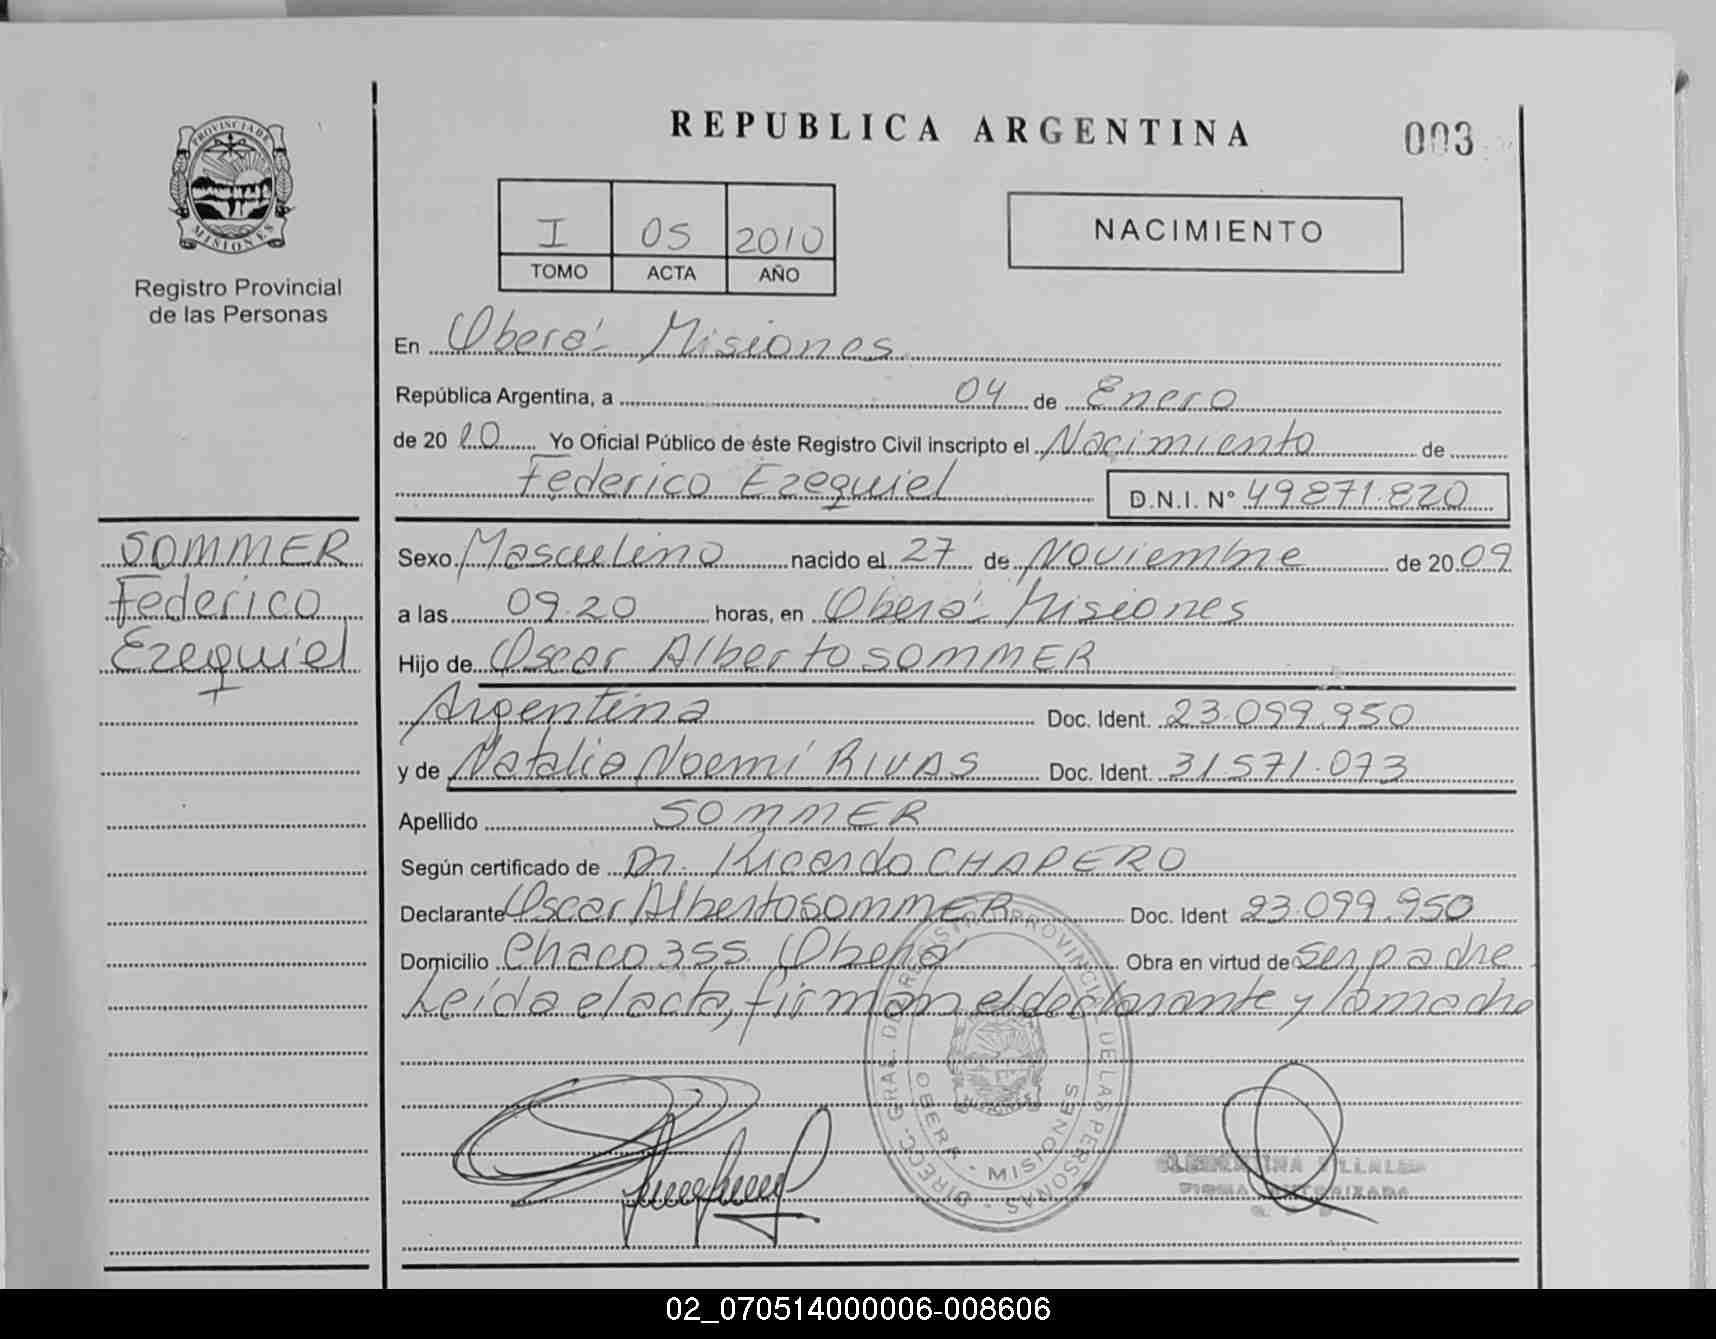 REPUBLICA ARGENTINA
003
PROVINCIA DE MISIONES
Registro Provincial
de las Personas
I 05 2010
TOMO ACTA AÑO
NACIMIENTO
En Oberá - Misiones
República Argentina, a 04 de Enero
de 20 10 Yo Oficial Público de éste Registro Civil inscripto el Nacimiento de
Federico Ezequiel D.N.I. Nº 49871.820
SOMMER
Federico
Ezequiel
Sexo Masculino nacido el 27 de Noviembre de 20 09
a las 09.20 horas, en Oberá - Misiones
Hijo de Oscar Alberto SOMMER
Argentina Doc. Ident. 23.099.950
y de Natalia Noemí RIVAS Doc. Ident. 31.571.073
Apellido SOMMER
Según certificado de Dr. Ricardo CHAPERO
Declarante Oscar Alberto SOMMER Doc. Ident 23.099.950
Domicilio Chaco 355 Oberá Obra en virtud de ser padre
Leída el acta, firman el declarante y la madre
DIRECC. GRAL. DEL REGISTRO PROVINCIAL DE LAS PERSONAS
OBERA - MISIONES
FIRMA AUTORIZADA
02_070514000006-008606